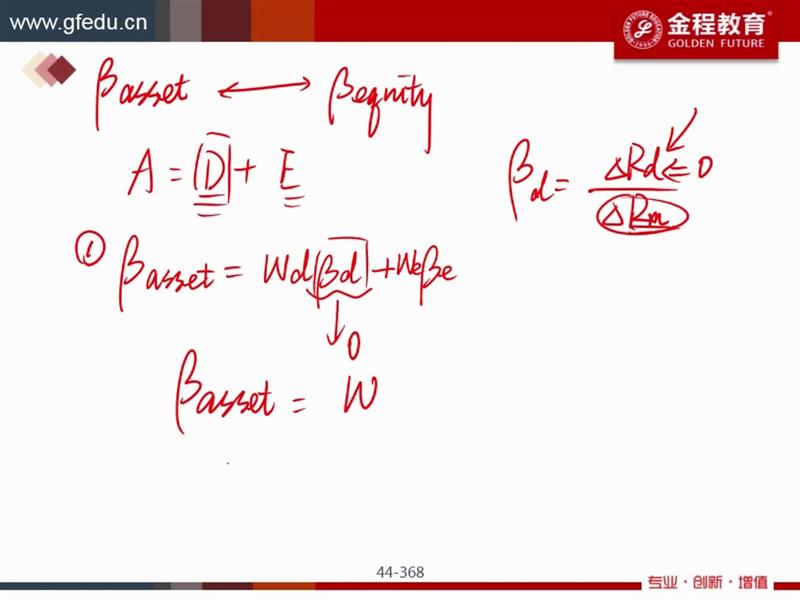 www.gfedu.cn
金程教育
GOLDEN FUTURE
βasset ⟷ βequity
A = D + E
βd = ΔRd ⇐ 0 / ΔRm
① βasset = Wdβd + Weβe
↓ 0
βasset = W
44-368
专业·创新·增值